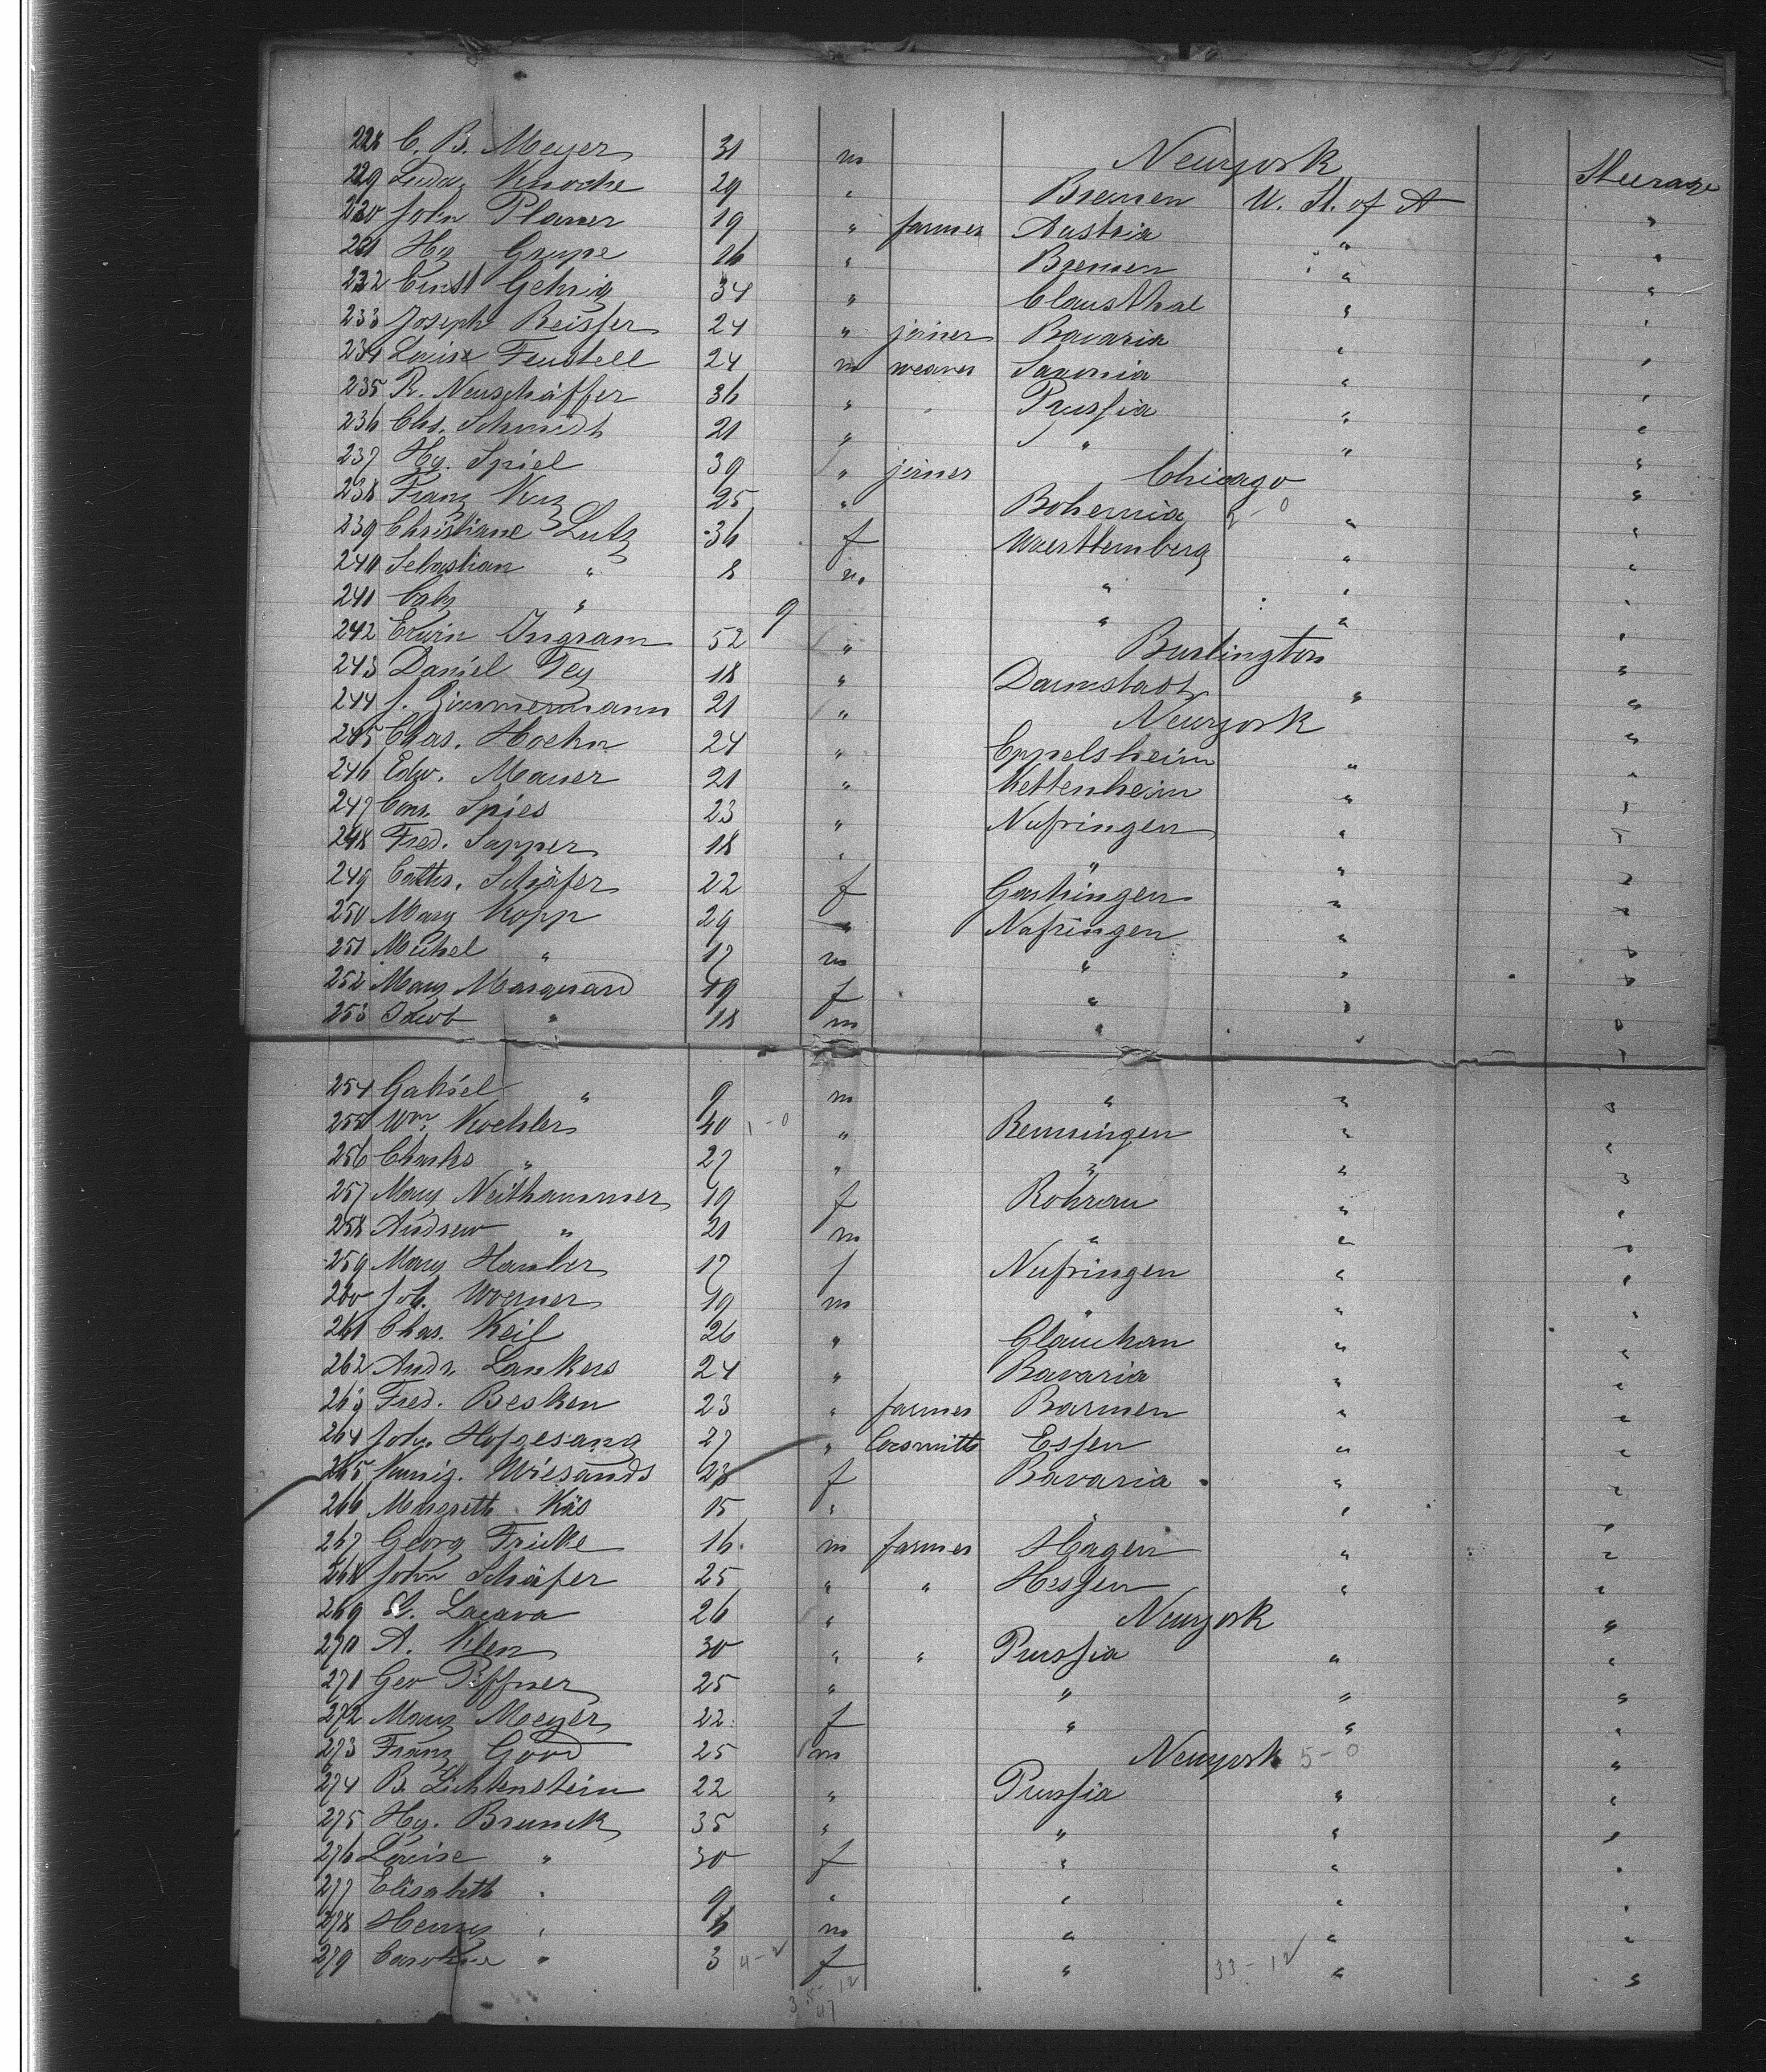 228 C. B. Meyer 31 m Newyork Steerage
229 Ludw. Knoche 29 " Bremen U. St. of A "
230 John Planer 19 " farmer Austria " "
231 Hy Grupe 16 " Bremen " "
232 Ernst Gehrig 34 " Clausthal " "
233 Joseph Reisser 24 " joiner Bavaria " "
234 Louise Feustell 24 m weaver Saxonia " "
235 R. Neuschäffer 36 " " Prussia " "
236 Chs. Schmidt 21 " " " "
237 Hy. Spiel 39 " joiner Chicago "
238 Franz Kuz 25 " Bohemia 2-0 " "
239 Christiane Lutz 36 f Wuerttemberg " "
240 Sebastian " 8 m " " "
241 Cath " 9 " " "
242 Erwin Ingram 52 " Burlington "
243 Daniel Fey 18 " Darmstadt " "
244 J. Zimmermann 21 " Newyork "
245 Chas. Hoehn 24 " Eppelsheim " "
246 Edw. Mauer 21 " Kettenheim " "
247 Conr. Spies 23 " Nufringen " "
248 Fred. Sapper 18 " " " "
249 Cathr. Schäfer 22 f " "
250 Mary Kopp 29 " Nufringen " "
251 Michel " 17 m " " "
252 Mary Marquard 19 f " " "
253 Jacob " 18 m " " "
254 Gabriel " 9 m " " "
255 Wm. Koehler 40 1-0 " Renningen " "
256 Charles " 27 " " " "
257 Mary Neithammer 19 f Rohrau " "
258 Andrew " 21 m " " "
259 Mary Hamber 17 f Nufringen " "
260 Joh. Woerner 19 m " " "
261 Chas. Keil 26 " Glauchau " "
262 Andr. Lankers 24 " Bavaria " "
263 Fred. Besken 23 " farmer Barmen " "
264 Joh. Hofgesang 27 " Essen " "
265 Kunig. Wiesands 28 f Bavaria " "
266 Margreth Käs 15 " " " "
267 Georg Fricke 16 m farmer Hagen " "
268 John Schäfer 25 " " Hessen " "
269 Lacava 26 " Newyork "
270 A. Klen 30 " " Prussia " "
271 Geo Piffner 25 " " " "
272 Mary Meyer 22 f " " "
273 Franz Good 25 m Newyork 5-0 "
274 B. Lichtenstein 22 " Prussia " "
275 Hy. Brunck 35 " " " "
276 Louise " 30 f " " "
277 Elisabeth " 9 " " " "
278 Henry " 6 m " " "
279 Caroline " 3 4-2 f " 33-12 " "
35-12
47